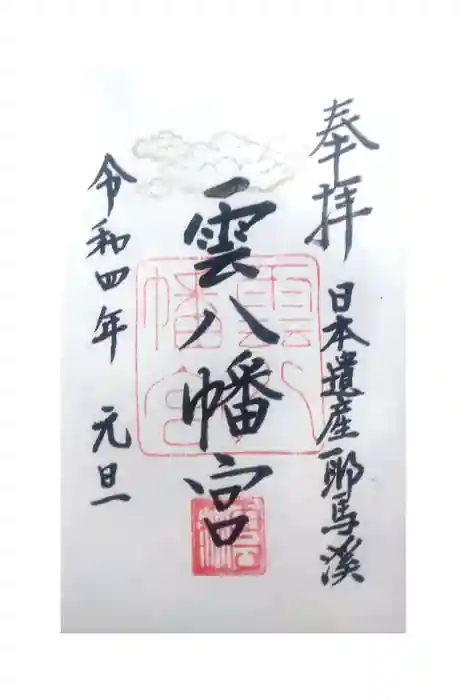 奉拝
日本遺産耶馬溪
雲八幡宮
雲八幡宮
令和四年 元旦